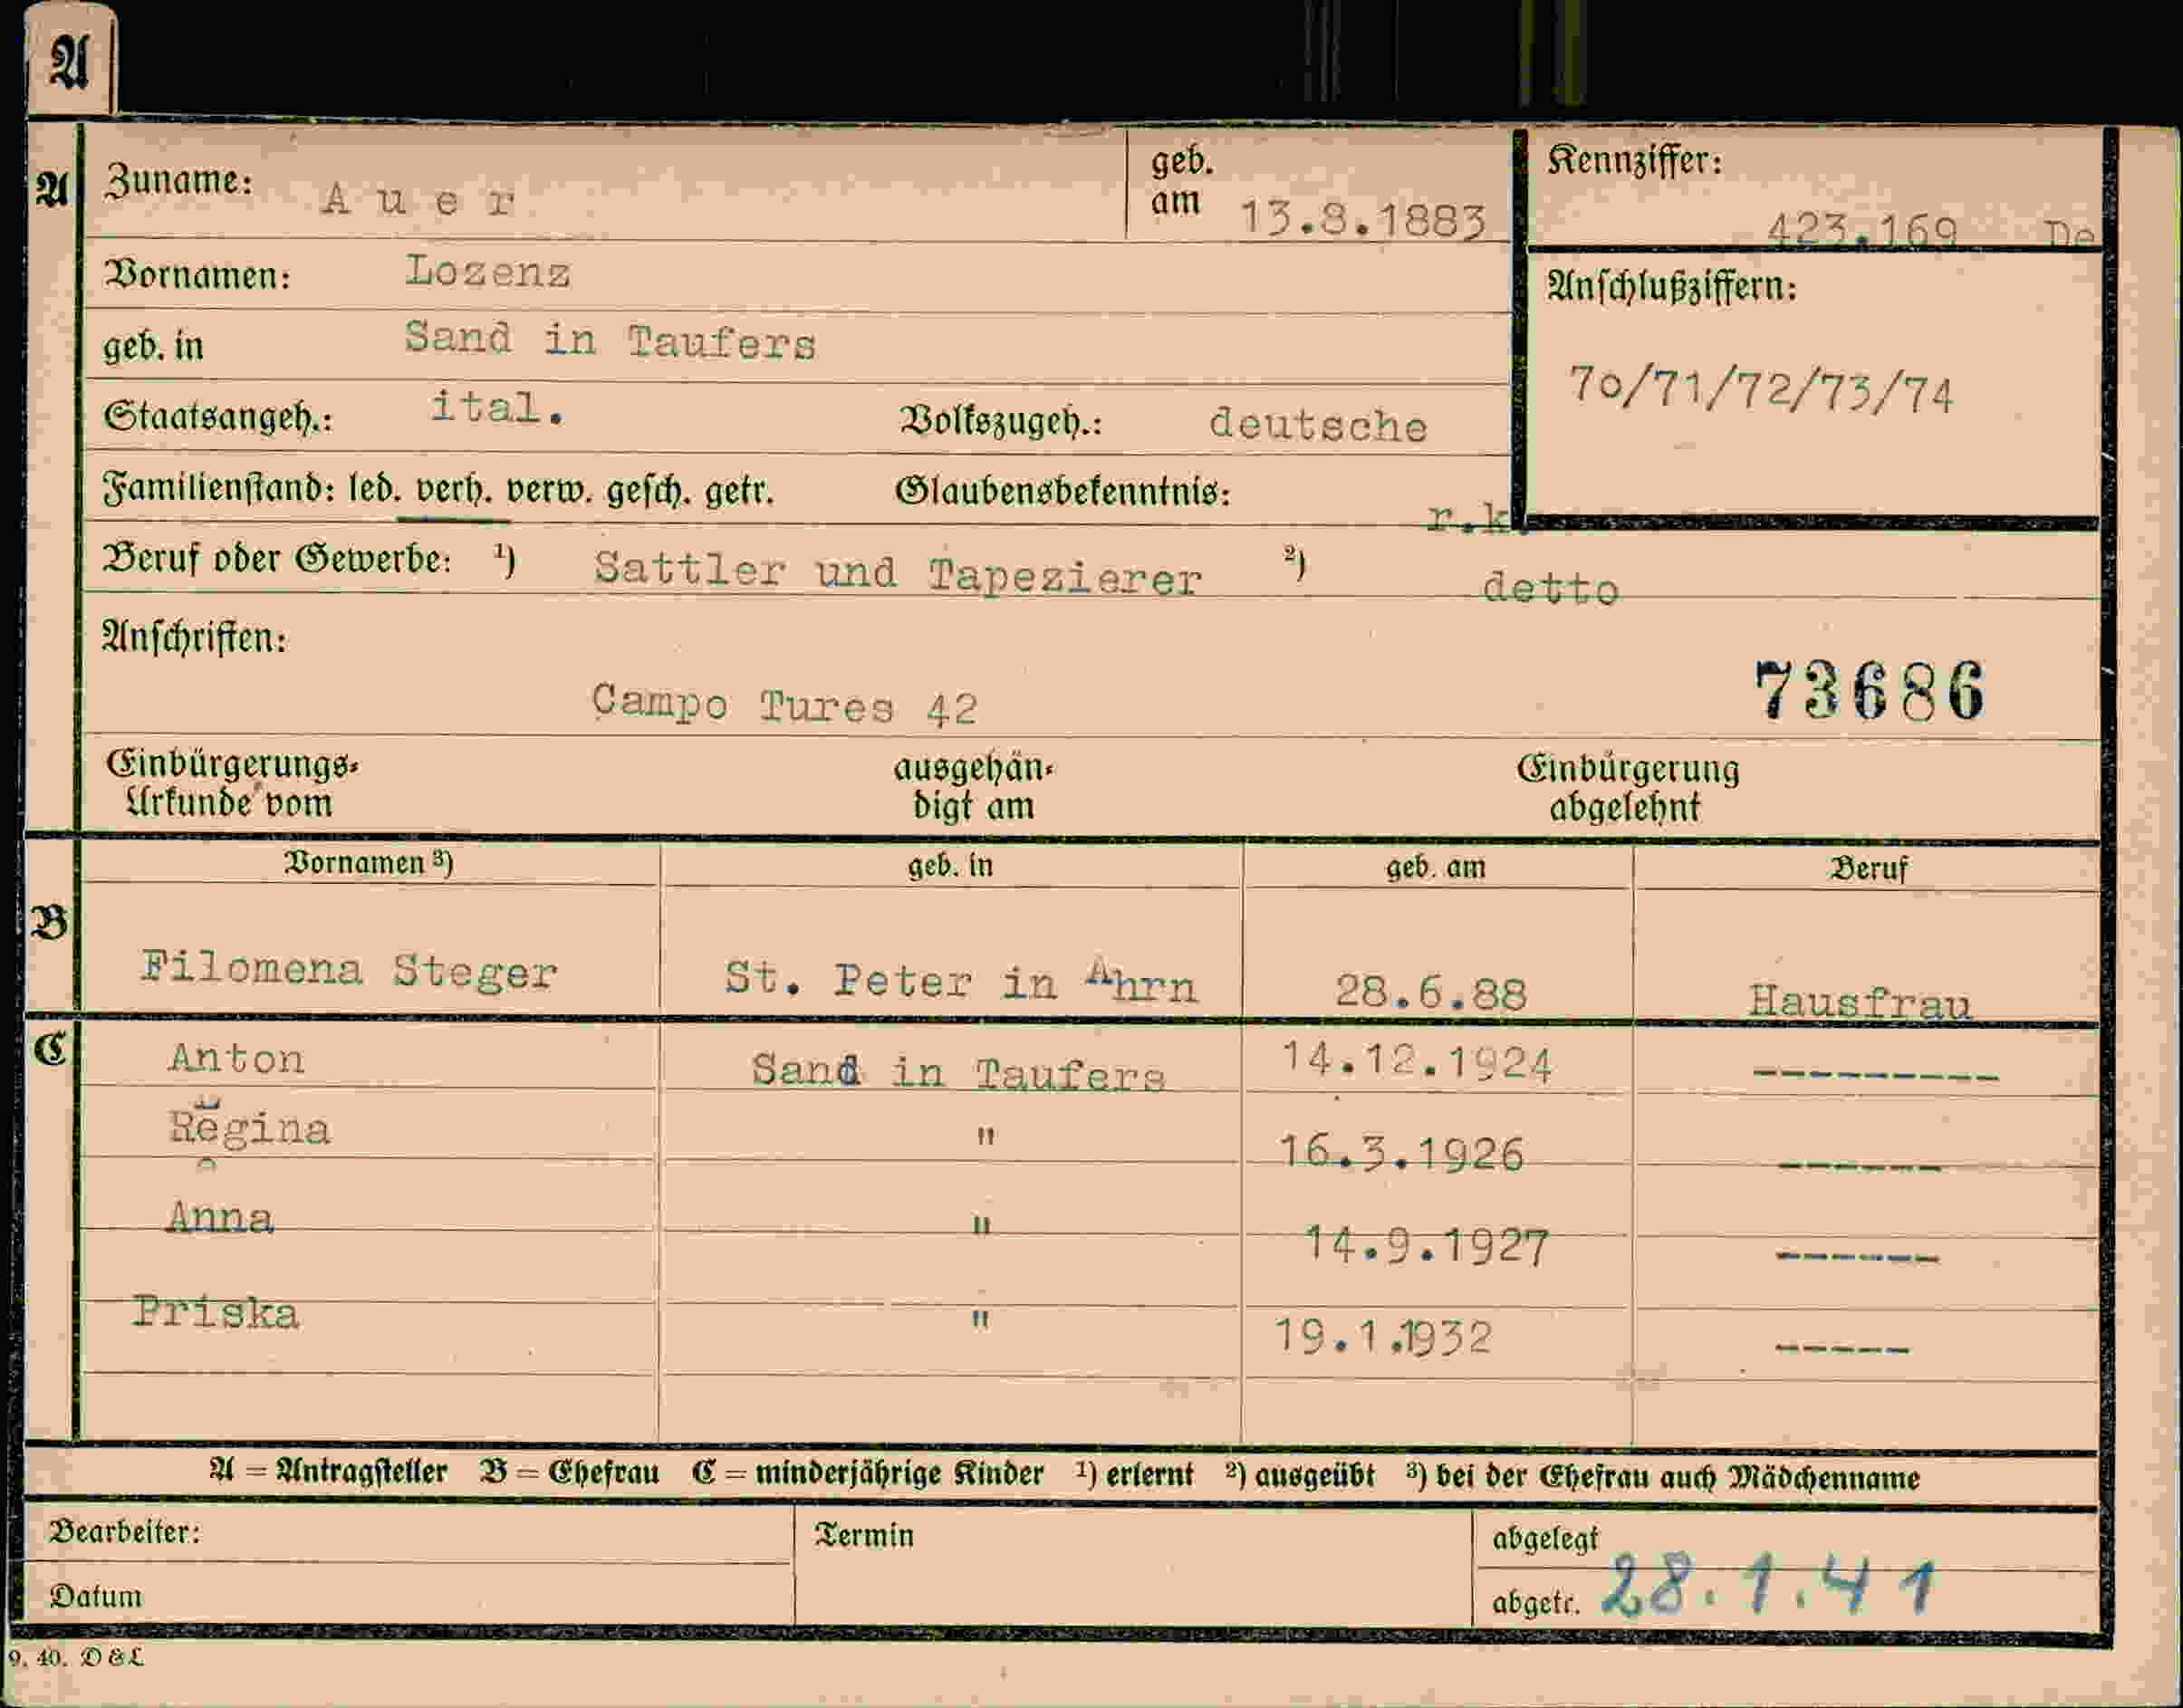 A
A Zuname: Auer geb. am 13.8.1883 Kennziffer: 423.169 De
Vornamen: Lozenz Anschlußziffern:
geb. in Sand in Taufers 70/71/72/73/74
Staatsangeh.: ital. Volkszugeh.: deutsche
Familienstand: led. verh. verw. gesch. getr. Glaubensbekenntnis: r.k.
Beruf oder Gewerbe: ¹) Sattler und Tapezierer ²) detto
Anschriften:
Campo Tures 42 73686
Einbürgerungs- ausgehän- Einbürgerung
Urkunde vom digt am abgelehnt
Vornamen ³) geb. in geb. am Beruf
B Filomena Steger St. Peter in Ahrn 28.6.88 Hausfrau
C Anton Sand in Taufers 14.12.1924 ---------
Regina " 16.3.1926 ------
Anna " 14.9.1927 ------
Priska " 19.1.1932 -----
A = Antragsteller B = Ehefrau C = minderjährige Kinder ¹) erlernt ²) ausgeübt ³) bei der Ehefrau auch Mädchenname
Bearbeiter: Termin abgelegt
Datum abgetr. 28.1.41
9. 40. D & L